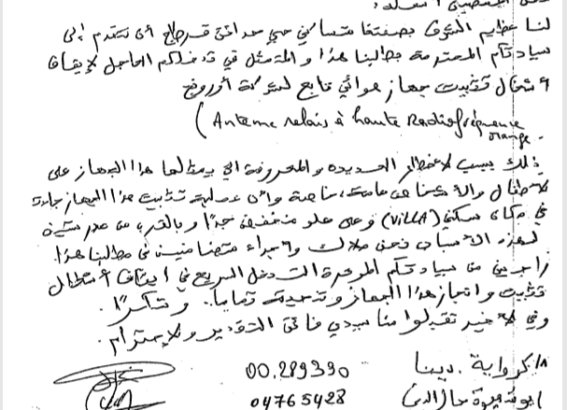 لنا عظيم الشرف بصفتنا متساكني حي حدائق قرطاج أن نتقدم إلى
سيادتكم المحترمة بطلبنا هذا والمتمثل في تدخلكم العاجل لإيقاف
أشغال تثبيت جهاز هوائي تابع لشركة أورونج
(Antenne relais à haute Radiofréquence
orange.
ذلك بسبب الأخطار العديدة والمعروفة التي يمثلها هذا الجهاز على
الأطفال والأشخاص عامة، خاصة وأن عملية تثبيت هذا الجهاز جارية
في مكان سكني (VILLA) وعلى علو منخفض جدا وبالقرب من
لهذه الأسباب نحن ملاك وأجراء متضامنين في طلبنا هذا
راجين من سيادتكم الموقرة التدخل السريع في إيقاف أشغال
تثبيت وانجاز هذا الجهاز وتنحيته تماما. وشكرًا.
وفي الأخير تقبلوا منا سيدي فائق التقدير والإحترام.
دينا 00.289390
04765428